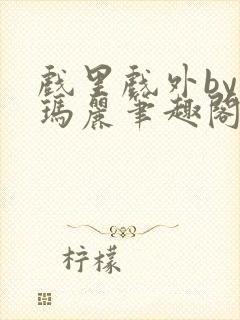 戲里戲外by
瑪麗筆趣閣
柠檬